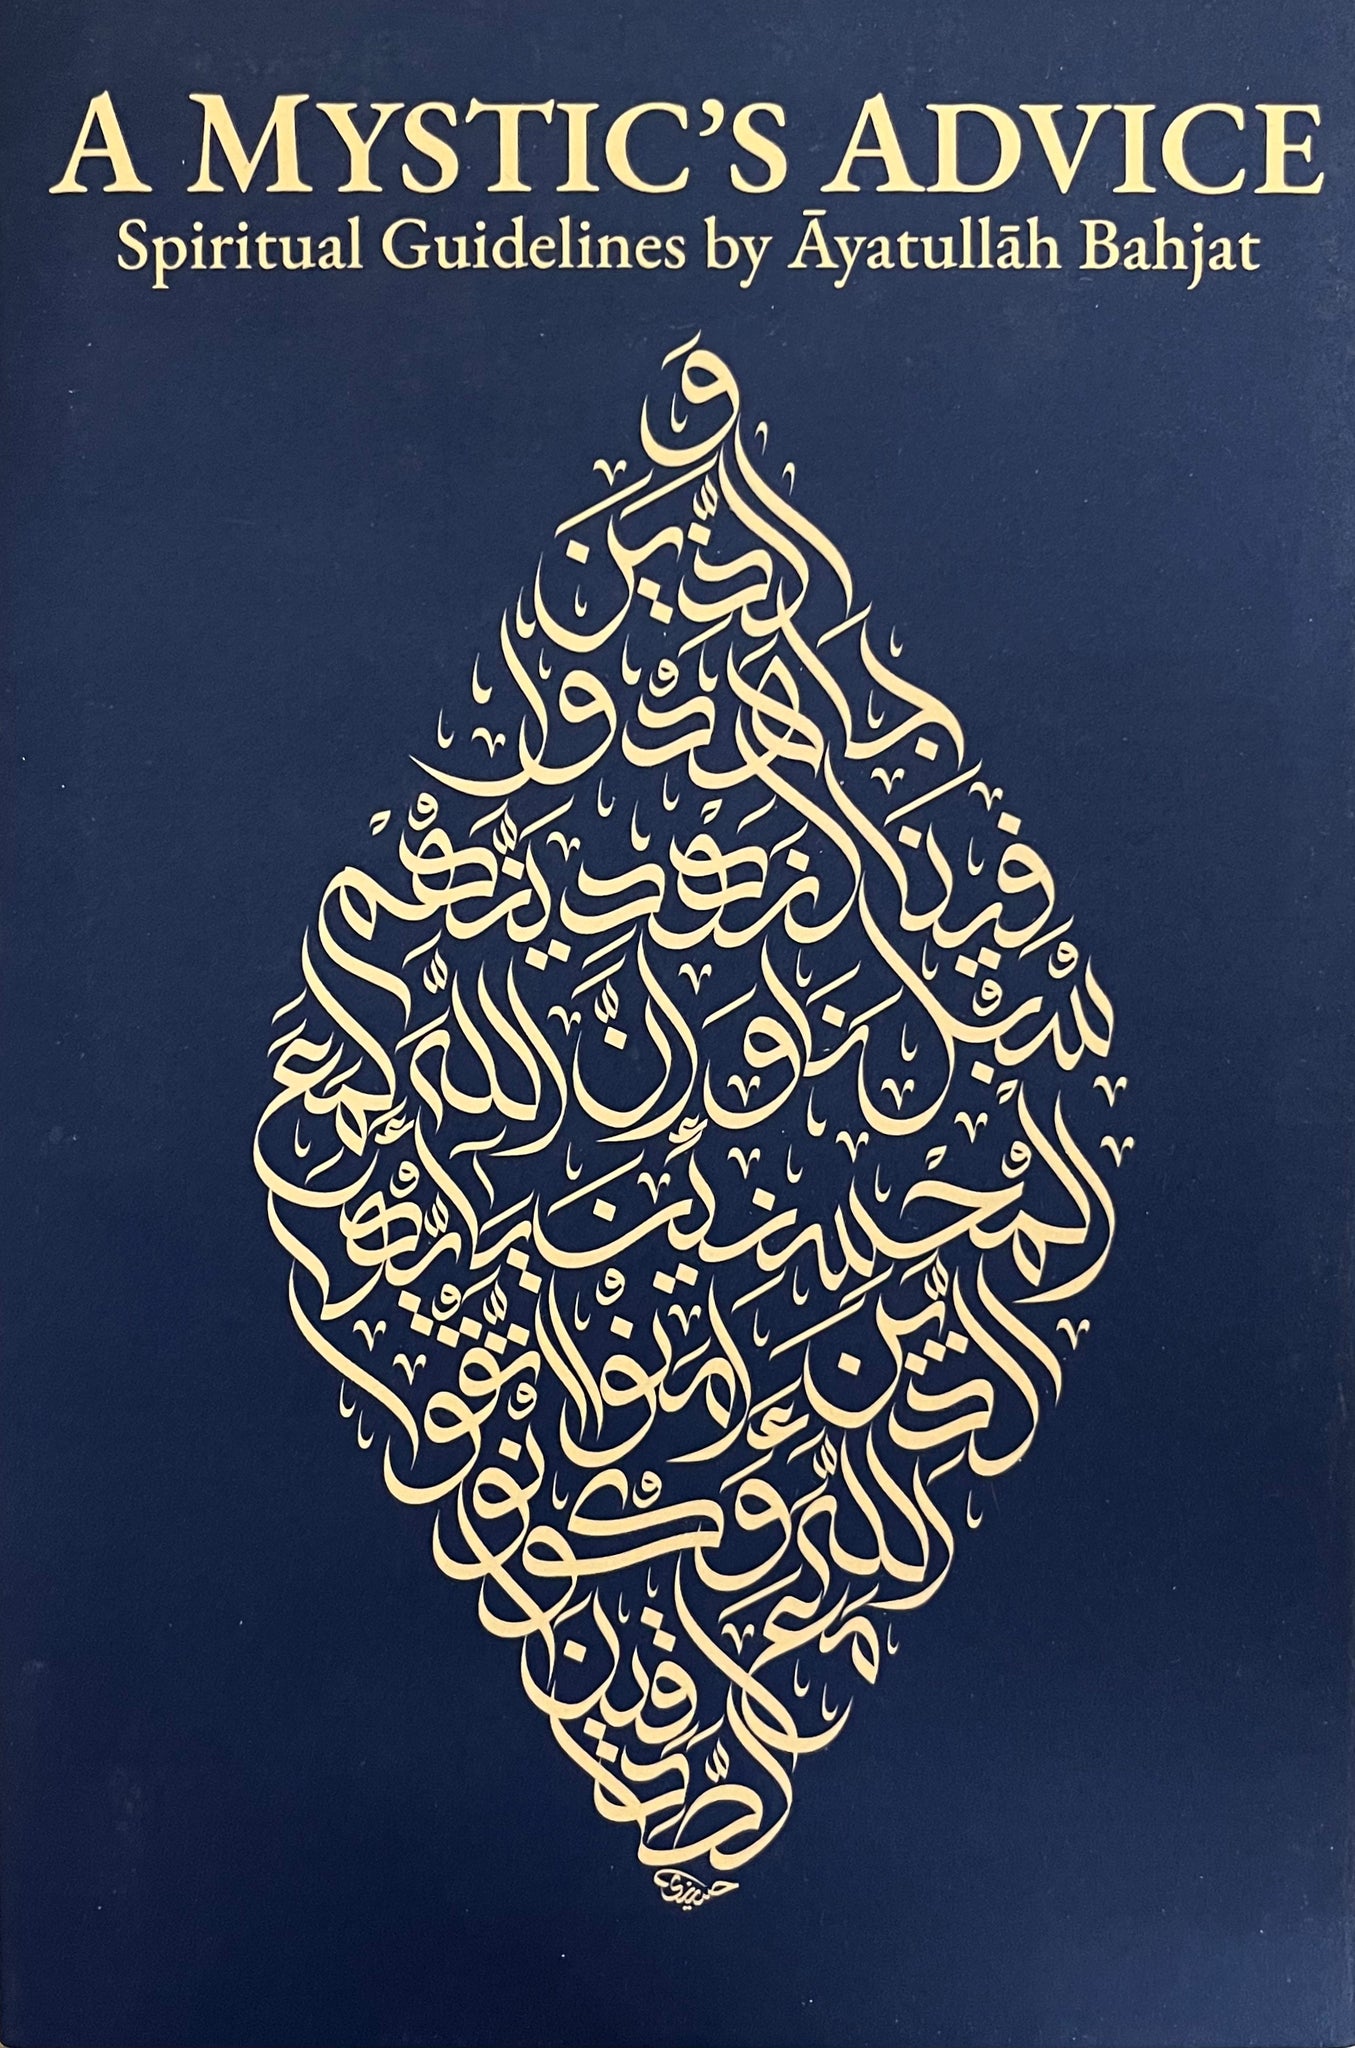 A MYSTIC'S ADVICE
Spiritual Guidelines by Āyatullāh Bahjat
وَ
الَّذِينَ
جَاهَدُوا
فِينَا لَنَهْدِيَنَّهُمْ
سُبُلَنَا وَإِنَّ اللَّهَ لَمَعَ
الْمُحْسِنِينَ يَا أَيُّهَا
الَّذِينَ ءَامَنُوا اتَّقُوا
اللَّهَ وَكُونُوا
مَعَ
الصَّادِقِينَ